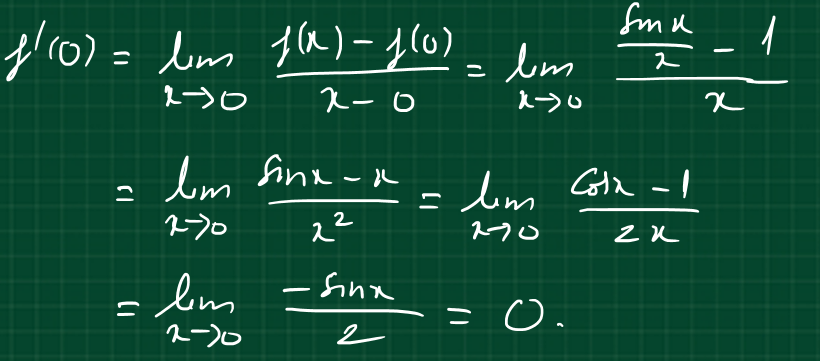 f'(0) = lim_{x→0} \frac{f(x) - f(0)}{x - 0} = lim_{x→0} \frac{\frac{sin x}{x} - 1}{x}
= lim_{x→0} \frac{sin x - x}{x^2} = lim_{x→0} \frac{cos x - 1}{2x}
= lim_{x→0} \frac{-sin x}{2} = 0.